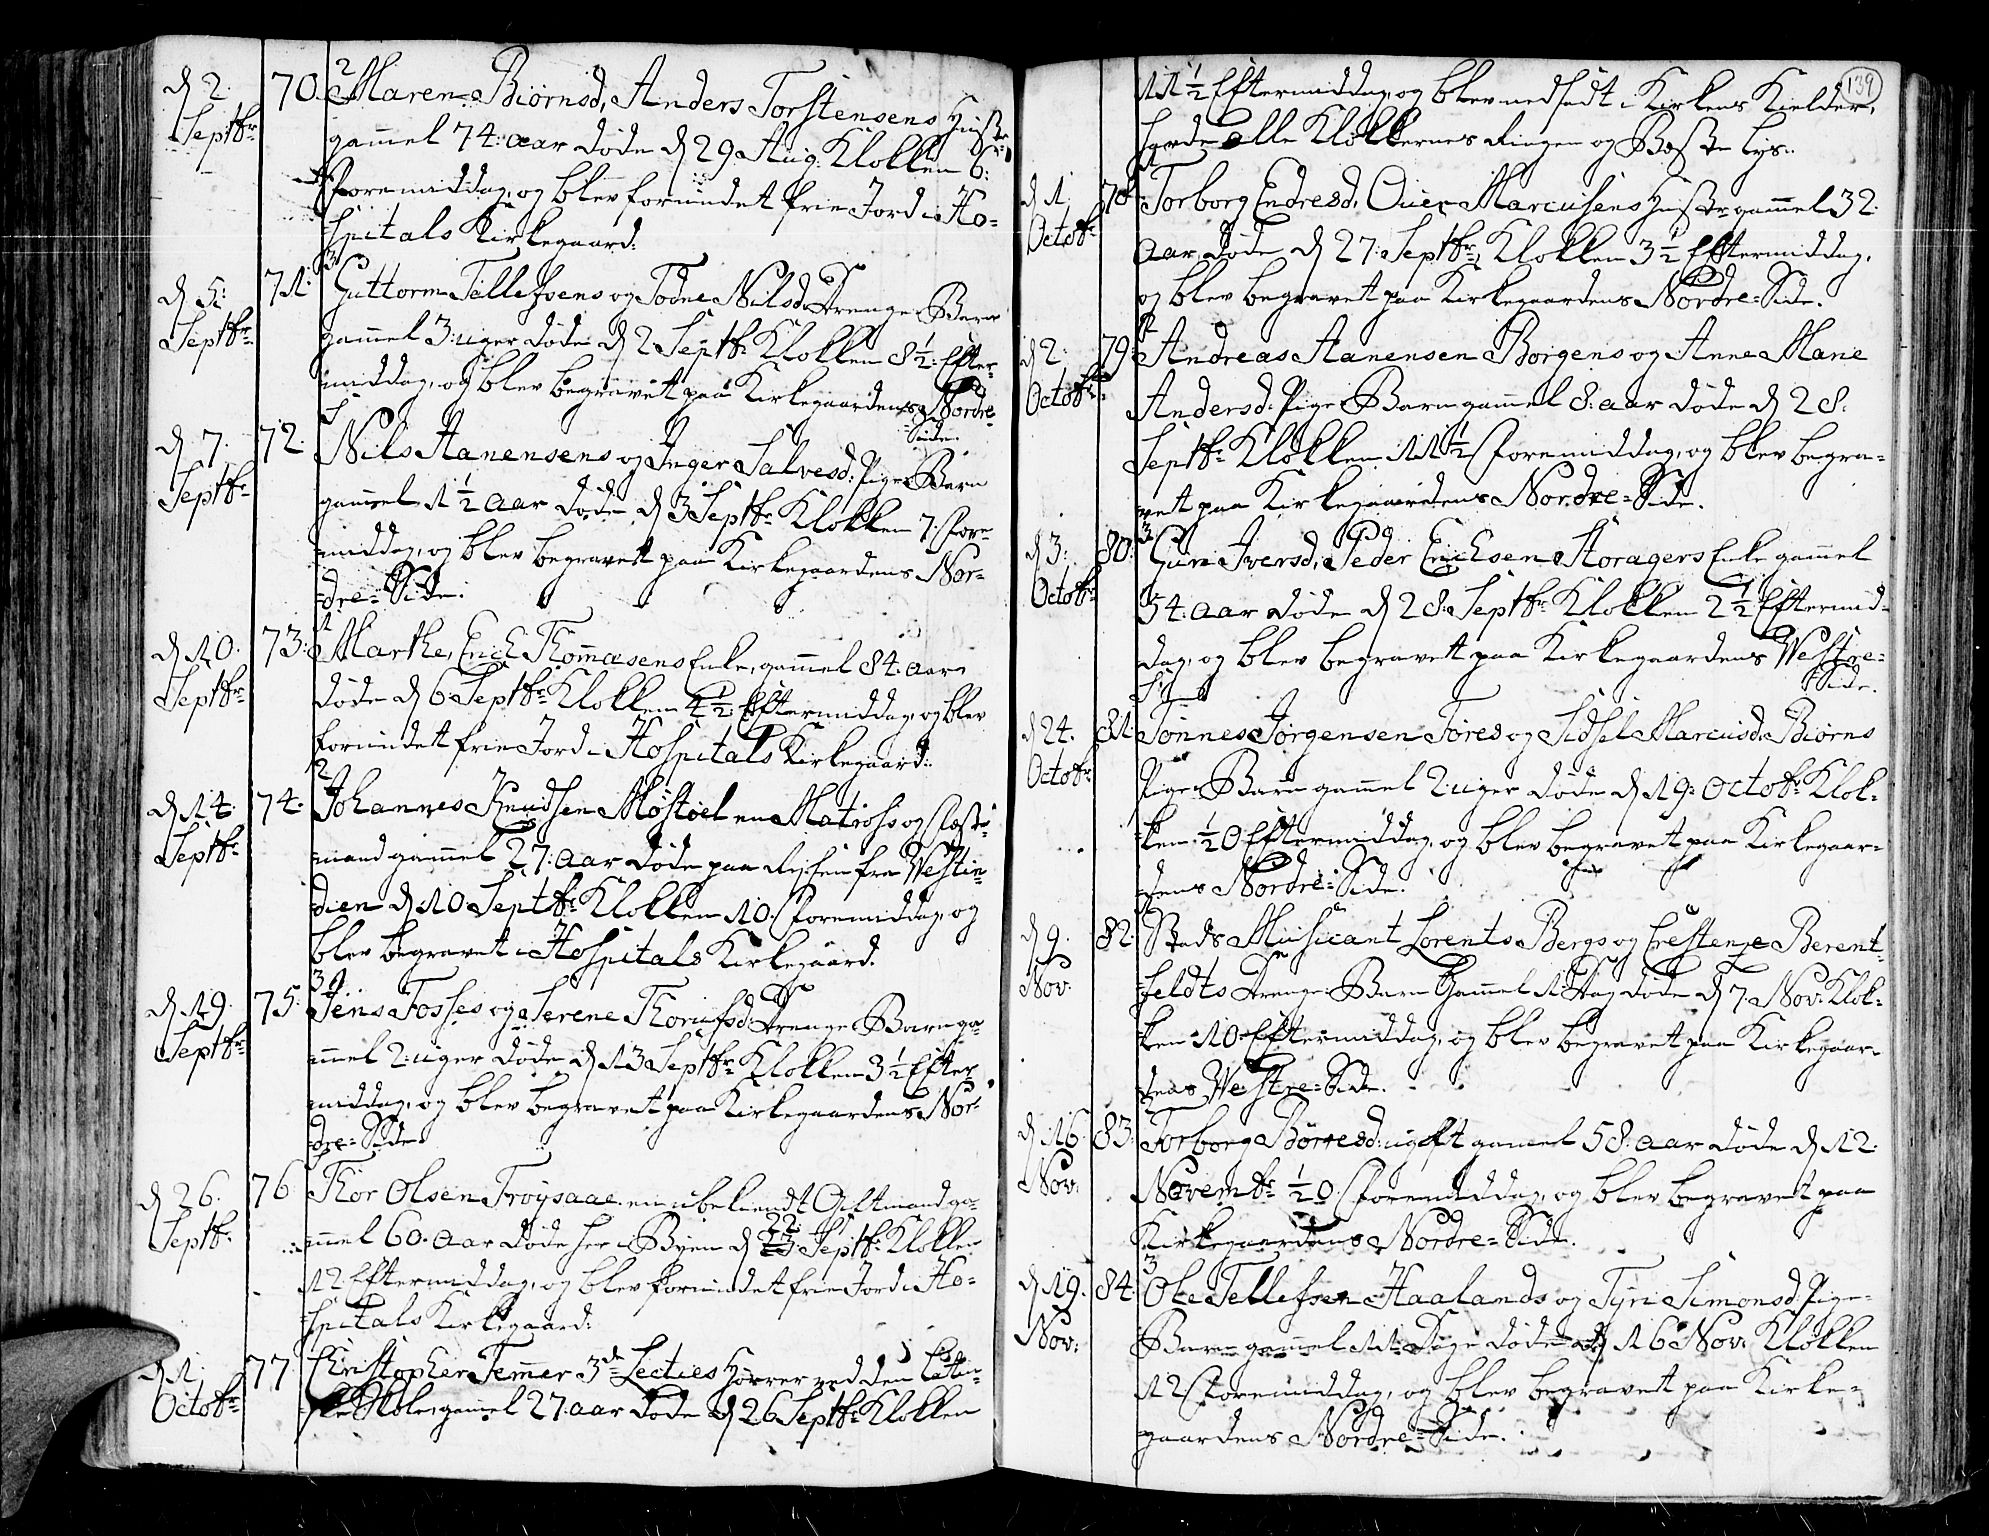 d 2. 70. 2 Maren Biørnsd, Anders Torstensens Hustr
Septbr gammel 74: aar døde d 29. Aug: Klokken 6:
Formiddag, og blev forundet frie Jord i Ho-
spitals Kirkegaard:
d 5: 71: 3 Guttorm Tellefsens og Todne Nilsd. Drenge Barn
Septbr gammel 3: uger døde d 2 Septbr Klokken 8½: Efter-
middag, og blev begravet paa Kirkegaardens Nordre
Side.
d 7. 72. Nils Aanensens og Inger Salvesd: Pige Barn
Septbr gammel 1½ aar døde d 3 Septbr Klokken 7: For-
middag, og blev begravet paa Kirkegaardens Nor-
dre-Side.
d 10. 73: 1 Marthe, Erich Thommasens Enke, gammel 84. aar
Septbr døde d 6 Septbr Klokken 4½: Eftermiddag, og blev
forundet frie Jord i Hospitals Kirkegaard:
d 14. 74. 2 Johannes Knudsen Møstøel en Matros og Fæste-
Septbr mand gammel 27: aar døde paa Reisen fra Westin-
dien d 10 Septbr Klokken 10. Foremiddag, og
blev begravet i Hospitals Kirkegaard.
d 19. 75. 3 Jens Fosses og Serene Thorufsd: Drenge Barn ga-
Septbr mmel 2: uger døde d 13 Septbr Klokken 3½ Efter
middag, og blev begravet paa Kirkegaardens Nor-
dre-Side
d 26. 76 Thor Olsen Trøysaae en ubekiendt Giftmand ga-
Septbr mmel 60. aar døde her i Byen d 22: 23: Septbr Klokken
12 Eftermiddag, og blev forundet frie Jord i Ho-
spitals Kirkegaard:
d 1: 77 Christopher Temmer 3de Lecties Hørrer ved den Latin-
Octobr ske Skole, gamel 27: aar døde d 26 Septbr Klokken
139
11½ Eftermiddag, og blev nedsadt i Kirkens Kielder,
havde alle Klokkernes Ringen og Beste Lys.
d 1. 78 Torborg Endresd, Ouer Marcusens Hustr gammel 32.
Octobr aar døde d 27: Septbr, Klokken 3½ Eftermiddag,
og blev begravet paa Kirkegaardens Nordre-Side.
d 2. 79: Andreas Aanensen Borgens og Anne Marie
Octobr Andersd: Pige Barn gammel 8: aar døde d 28.
Septbr Klokken 11½ Foremiddag, og blev begra-
vet paa Kirkegaardens Nordre-Side.
d 3: 80: 3 Guri Iversd, Peder Erichsen Storagers Enke gammel
Octobr 54: aar døde d 28: Septbr Klokken 2½ Eftermid-
dag, og blev begravet paa Kirkegaardens Westre-
Side.
d 24. 81. Tønnes Jørgensen Tøres og Sidsel Marcusd. Biørns
Octobr Pige Barn gammel 2: uger døde d 19: Octobr Klok-
ken ½0 Eftermiddag, og blev begravet paa Kirkegaar-
dens Nordre-Side.
d 9. 82. Stads Musicant Lorents Bergs og Crestense Berent-
Nov: feldts Drenge Barn Gammel 1 Dag døde d 7. Nov: Klok-
ken 10 Eftermiddag, og blev begravet paa Kirkegaar-
dens Westre-Side.
d 16. 83: Torborg Børresd: ugift gamel 58: aar døde d 12:
Nov: Novembr ½0. Foremiddag, og blev begravet paa
Kirkegaardens Nordre-Side.
d 19. 84. 3 Ole Tellefsen Haalands og Tyri Simonsd: Pige-
Nov: Barn gammel 11 Dage døde d 16 Nov: Klokken
12 Foremiddag, og blev begravet paa Kirke-
gaardens Nordre-Side.